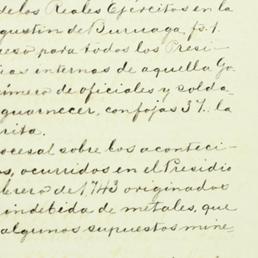 de los Reales Ejércitos en la
gustin de Buruaga, fs. 1.
ceso para todos los Presi-
cias internas de aquella Go
número de oficiales y solda
guarnecer, con fojas 37. la
rita.
ocesal sobre los aconteci-
os, ocurridos en el Presidio
brero de 1743 originados
indebida de metales, que
algunos supuestos mine